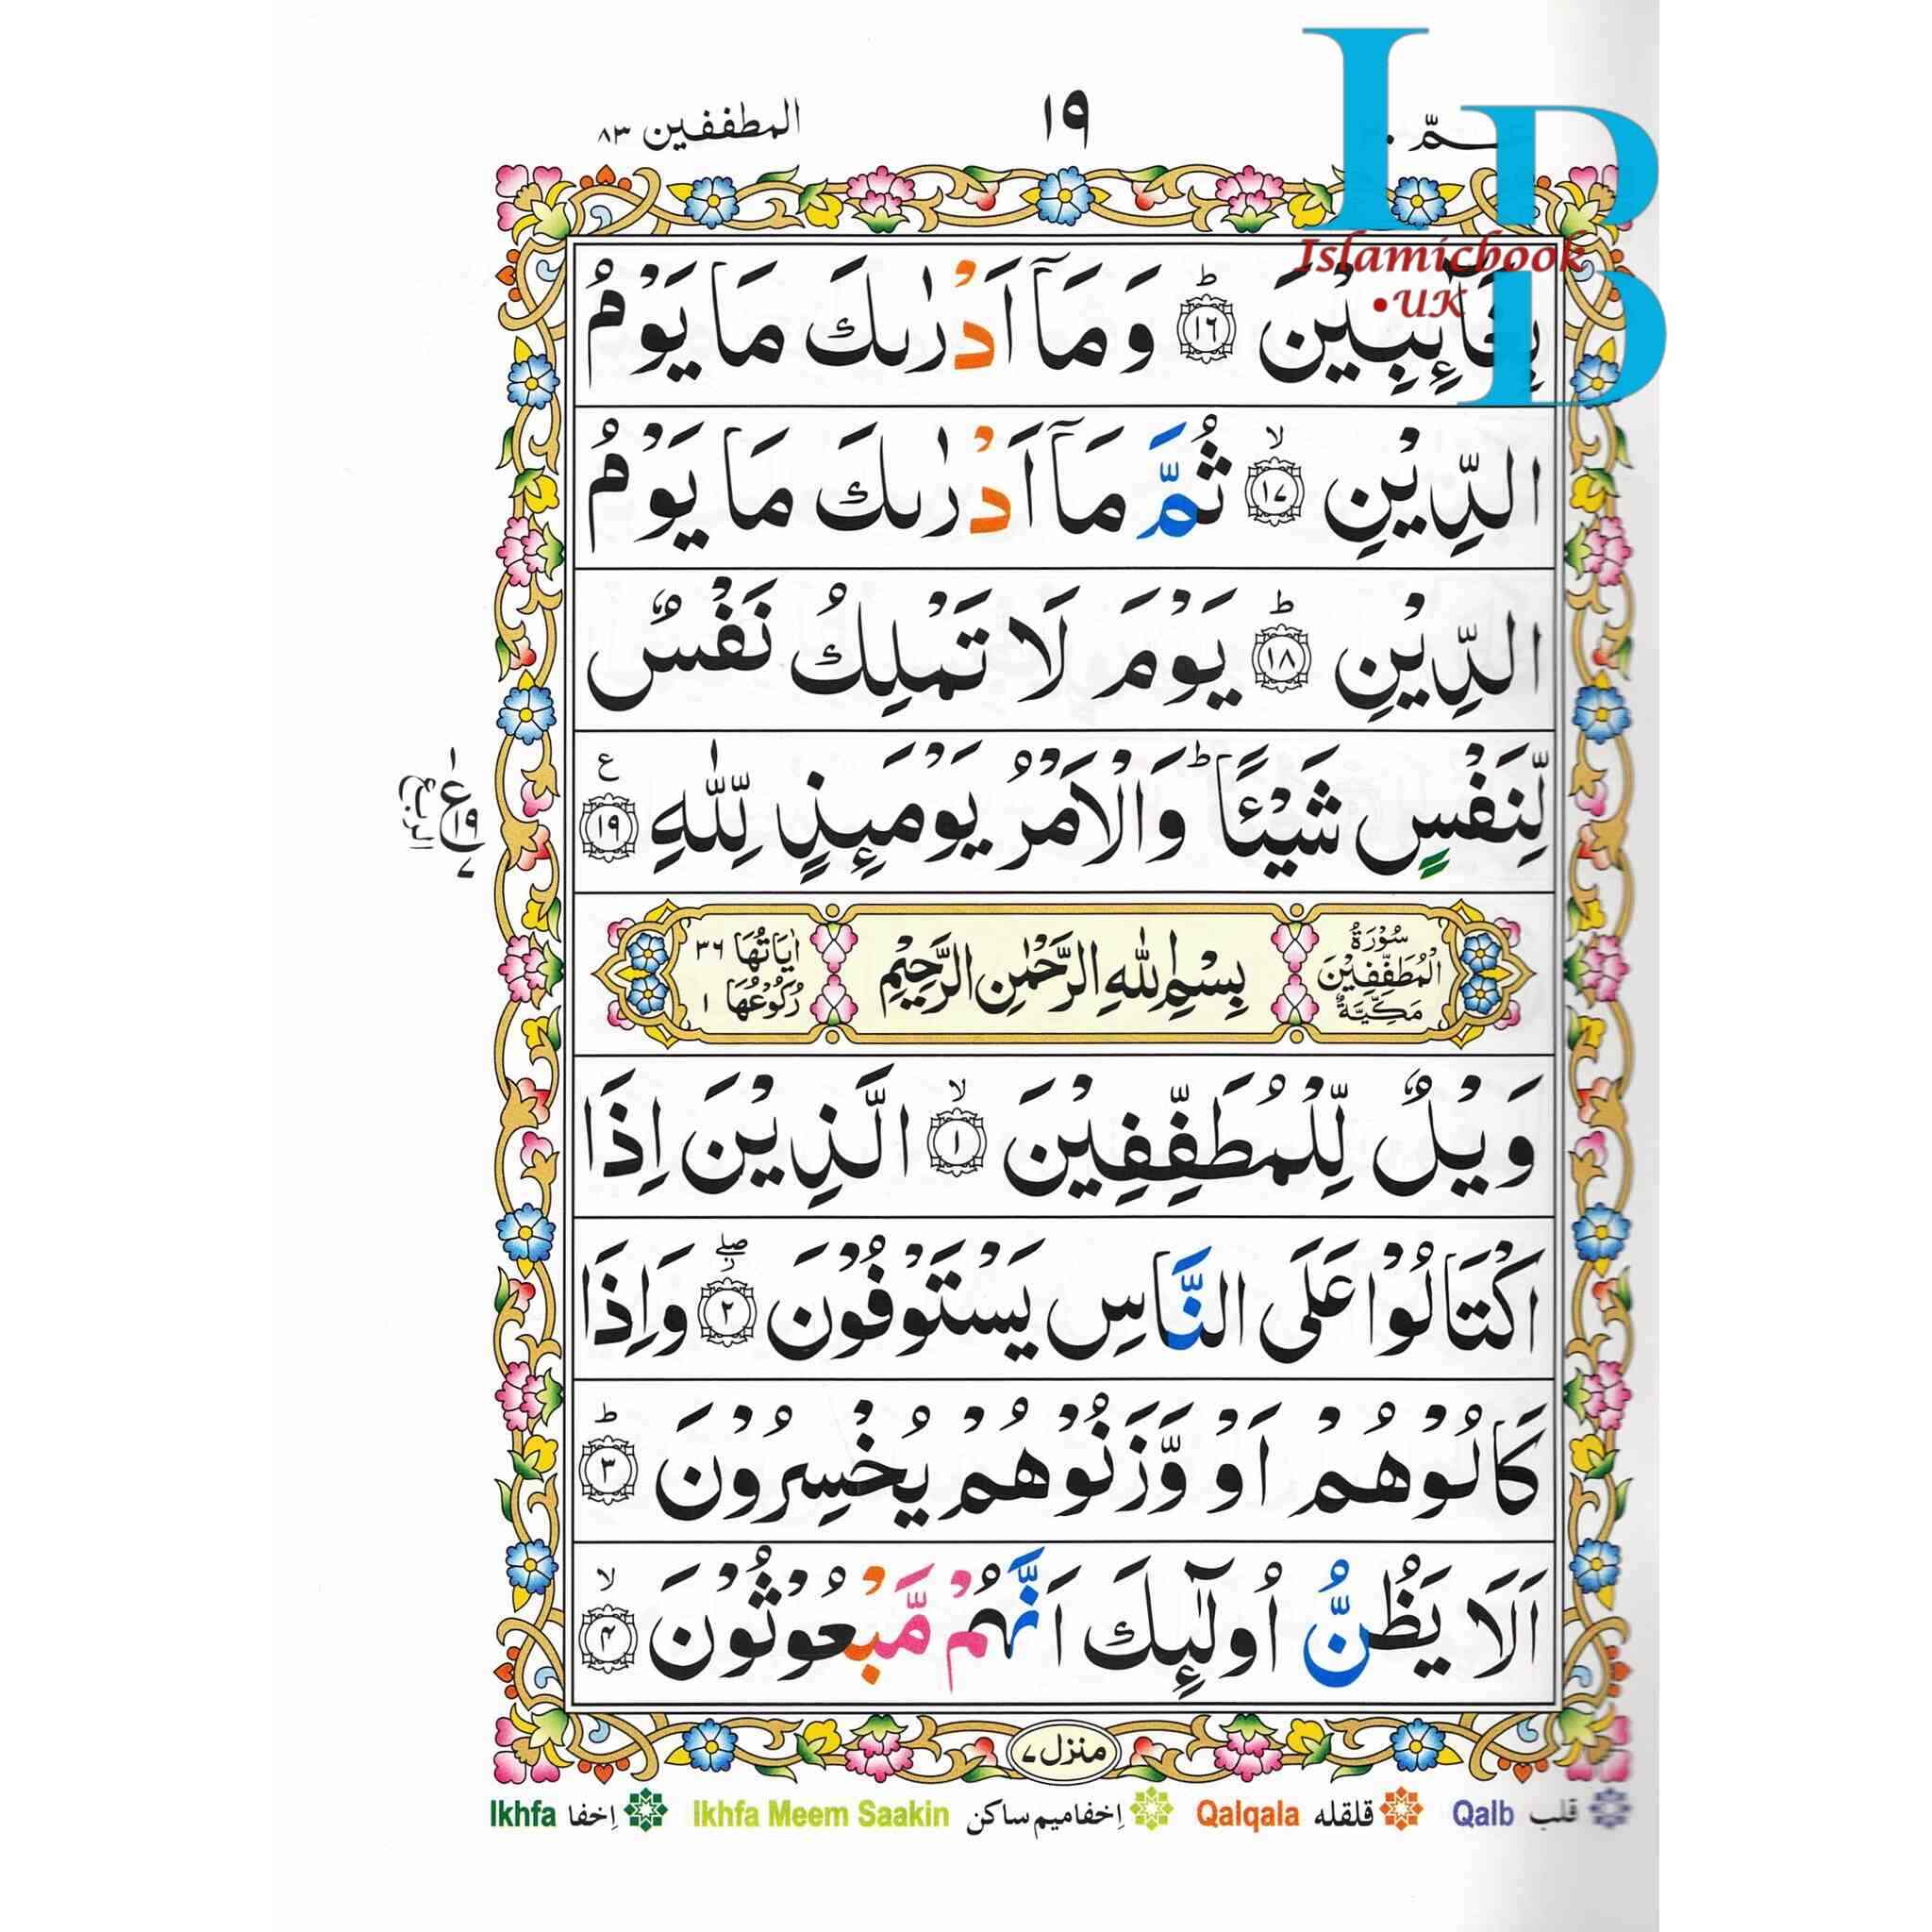 عـمّ
١٩
المطففين ٨٣
Islamicbook
.UK
بِغَآئِبِيْنَ ؕ ﴿١٦﴾ وَمَاۤ اَدْرٰىكَ مَا يَوْمُ
الدِّيْنِ ۙ ﴿١٧﴾ ثُمَّ مَاۤ اَدْرٰىكَ مَا يَوْمُ
الدِّيْنِ ؕ ﴿١٨﴾ يَوْمَ لَا تَمْلِكُ نَفْسٌ
لِّنَفْسٍ شَيْـًٔا ؕ وَالْاَمْرُ يَوْمَىِٕذٍ لِّلّٰهِ ﴿١٩﴾ ع
١
ع ١٩
٧
الربع
سُوْرَةُ الْمُطَفِّفِيْنَ مَكِّيَّةٌ
بِسْمِ اللّٰهِ الرَّحْمٰنِ الرَّحِيْمِ
اٰيَاتُهَا ٣٦
رُكُوْعُهَا ١
وَيْلٌ لِّلْمُطَفِّفِيْنَ ۙ ﴿١﴾ الَّذِيْنَ اِذَا
اكْتَالُوْا عَلَى النَّاسِ يَسْتَوْفُوْنَ ﴿٢﴾ۖ وَاِذَا
كَالُوْهُمْ اَوْ وَّزَنُوْهُمْ يُخْسِرُوْنَ ؕ ﴿٣﴾
اَلَا يَظُنُّ اُولٰٓىِٕكَ اَنَّهُمْ مَّبْعُوْثُوْنَ ۙ ﴿٤﴾
منزل ٧
قلب Qalb قلقله Qalqala اِخفا میم ساکن Ikhfa Meem Saakin اِخفا Ikhfa